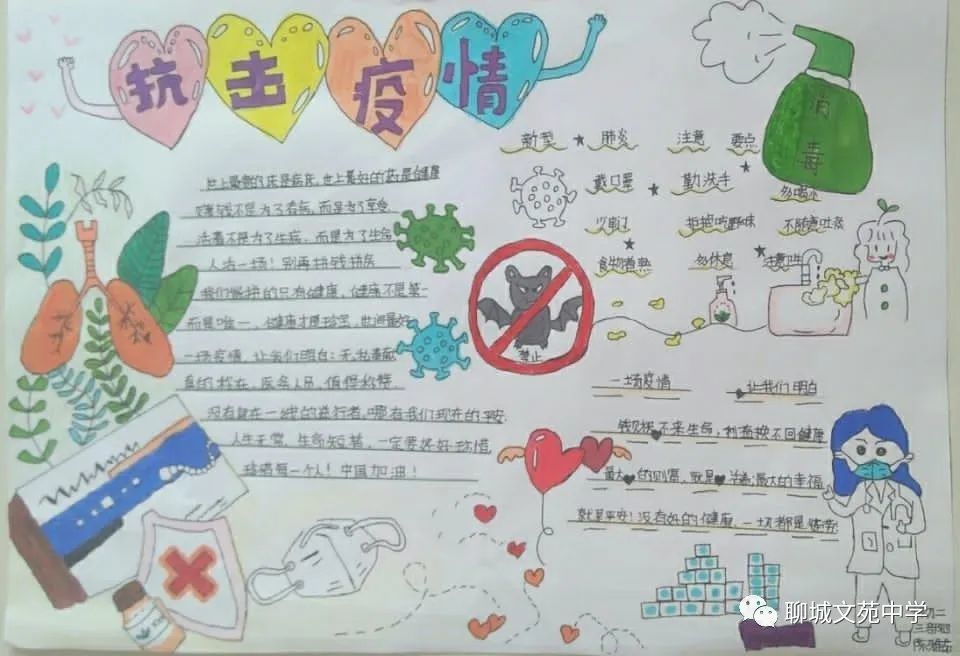 抗击疫情
世上最贵的床是病床,世上最好的药是健康
赚钱不是为了看病,而是为了享受
活着不是为了生病,而是为了生命
人活一场!别再拼钱拼房
我们能拼的只有健康,健康不是第一
而是唯一,健康才是珍宝,也间最好
一场疫情,让我们明白:无私奉献
真的存在,医务人员,值得称赞
没有奋在一线的逆行者,哪有我们现在的平安
人生无常,生命短暂,一定要好好珍惜
珍惜每一个人!中国加油!
消毒
新型 肺炎 注意 要点
戴口罩 勤洗手
少串门 拒绝吃野味 不随意吐痰
食物煮熟 注意卫生
禁止
一场疫情 让我们明白
钱财换不来生命,利益换不回健康
最大的财富,就是活着;最大的幸福
就是平安!没有好的健康,一切都是
聊城文苑中学
初二